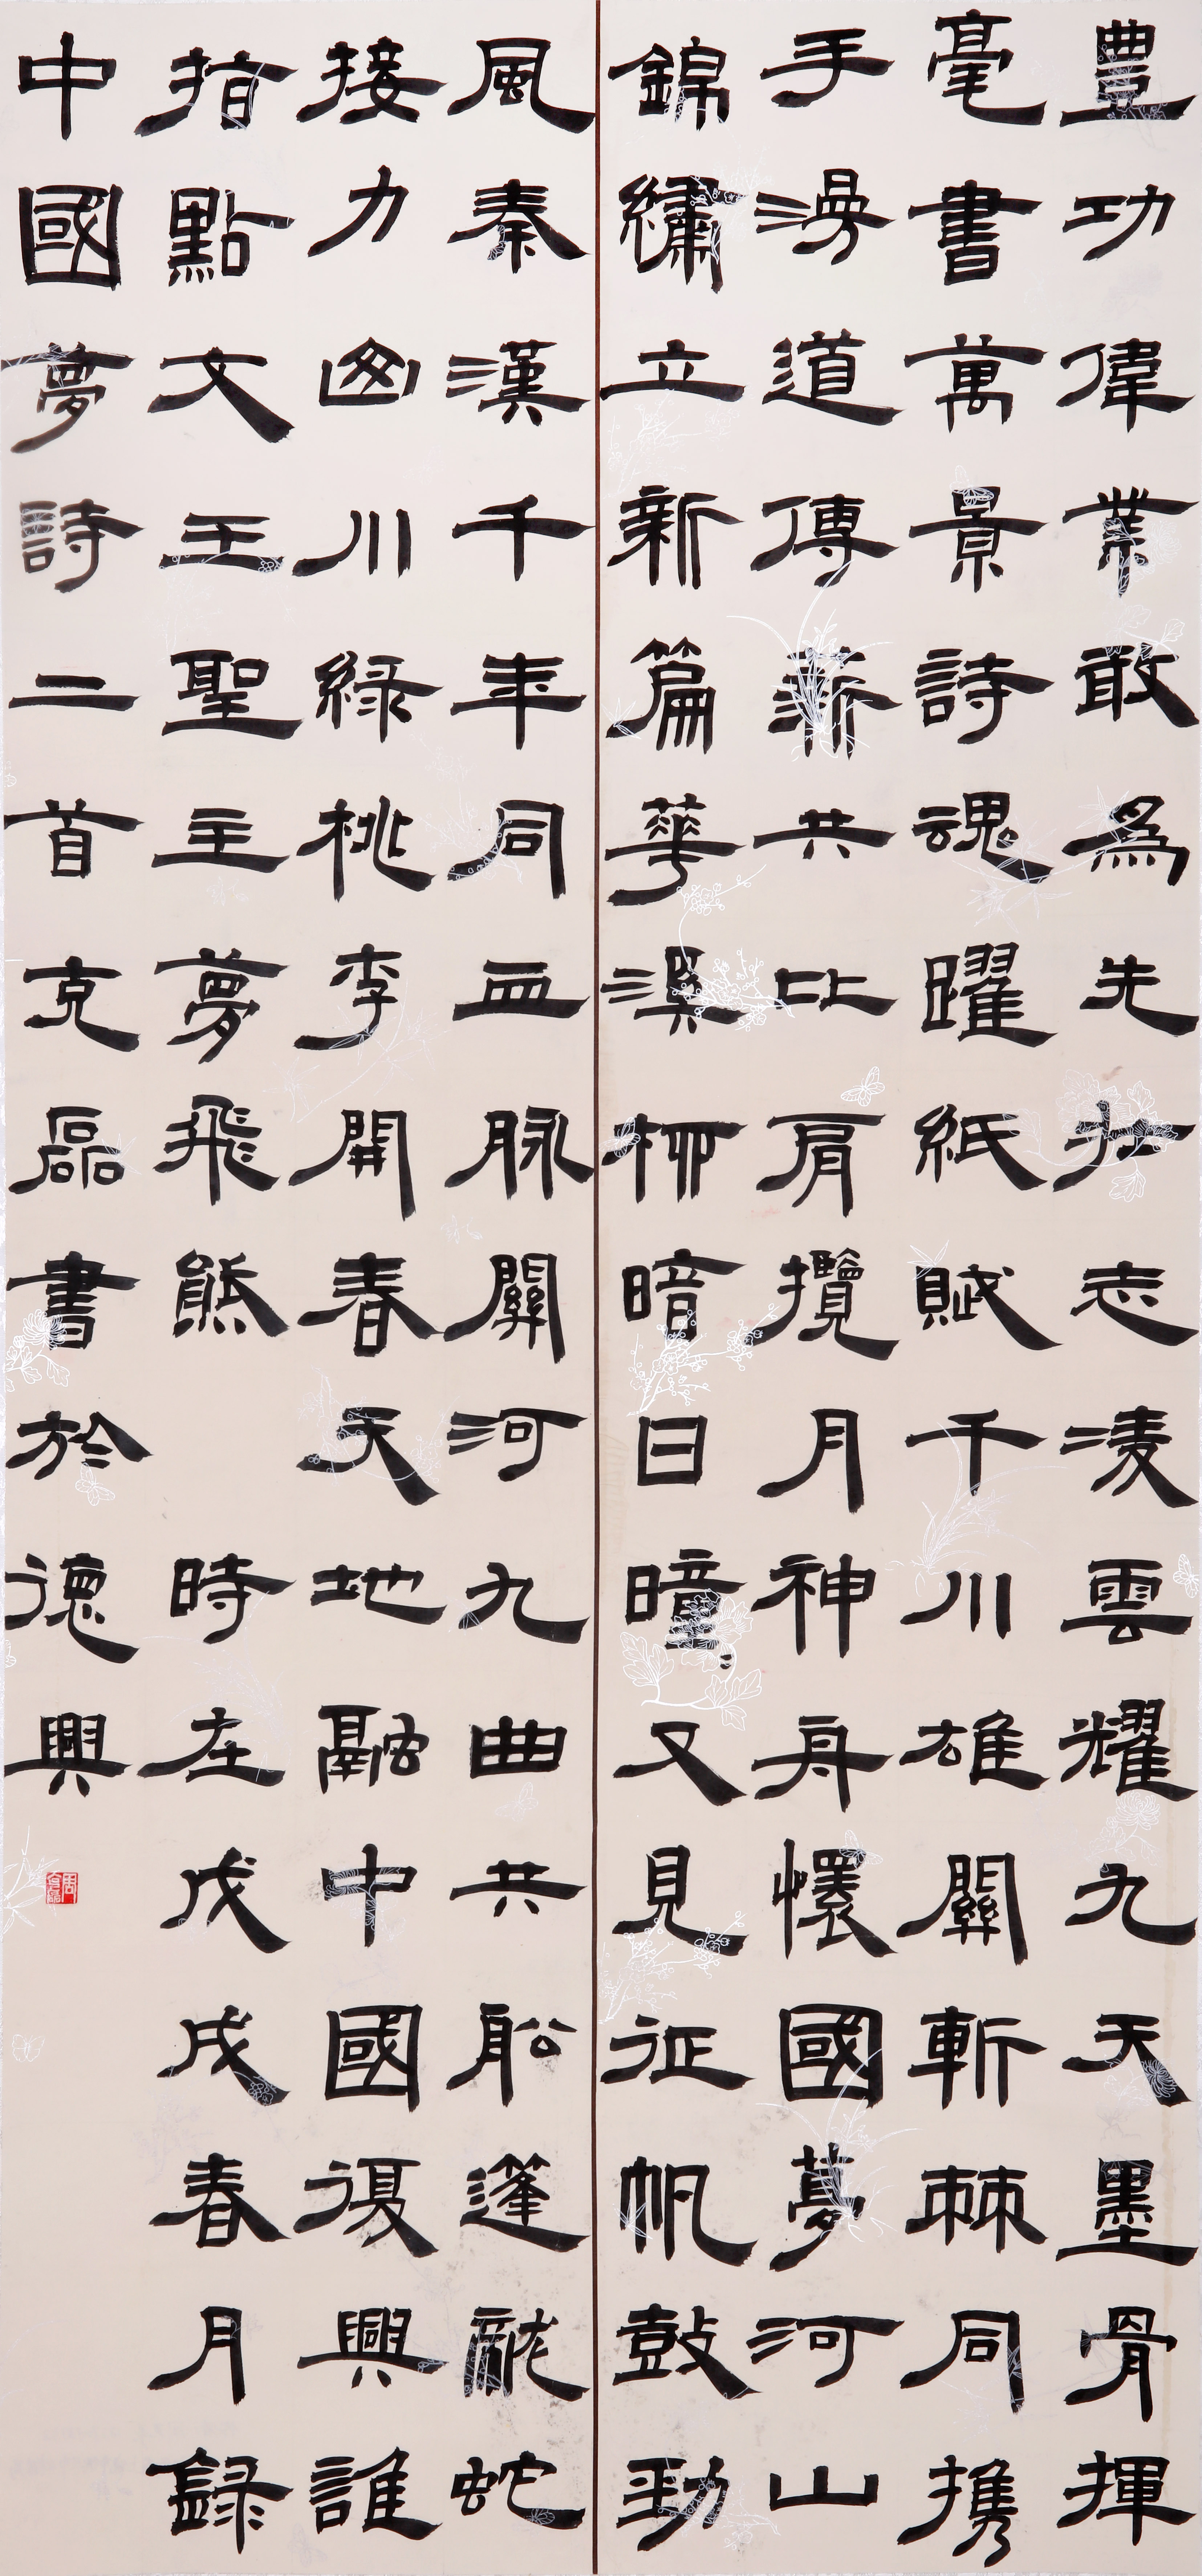 豊功偉業敢爲先壯志凌雲耀九天墨骨揮
毫書萬景詩魂躍紙賦千川雄關斬棘同携
手漫道傳薪共比肩攬月神舟懷國夢河山
錦繡立新篇華溪柳暗日曈〻又見征帆鼓勁
風秦漢千年同血脉關河九曲共船蓬龍蛇
接力川緑桃李開春天地融中國復興誰
指點文王聖主夢飛熊 時在戊戌春月録
中國夢詩二首克磊書於德興
周克磊